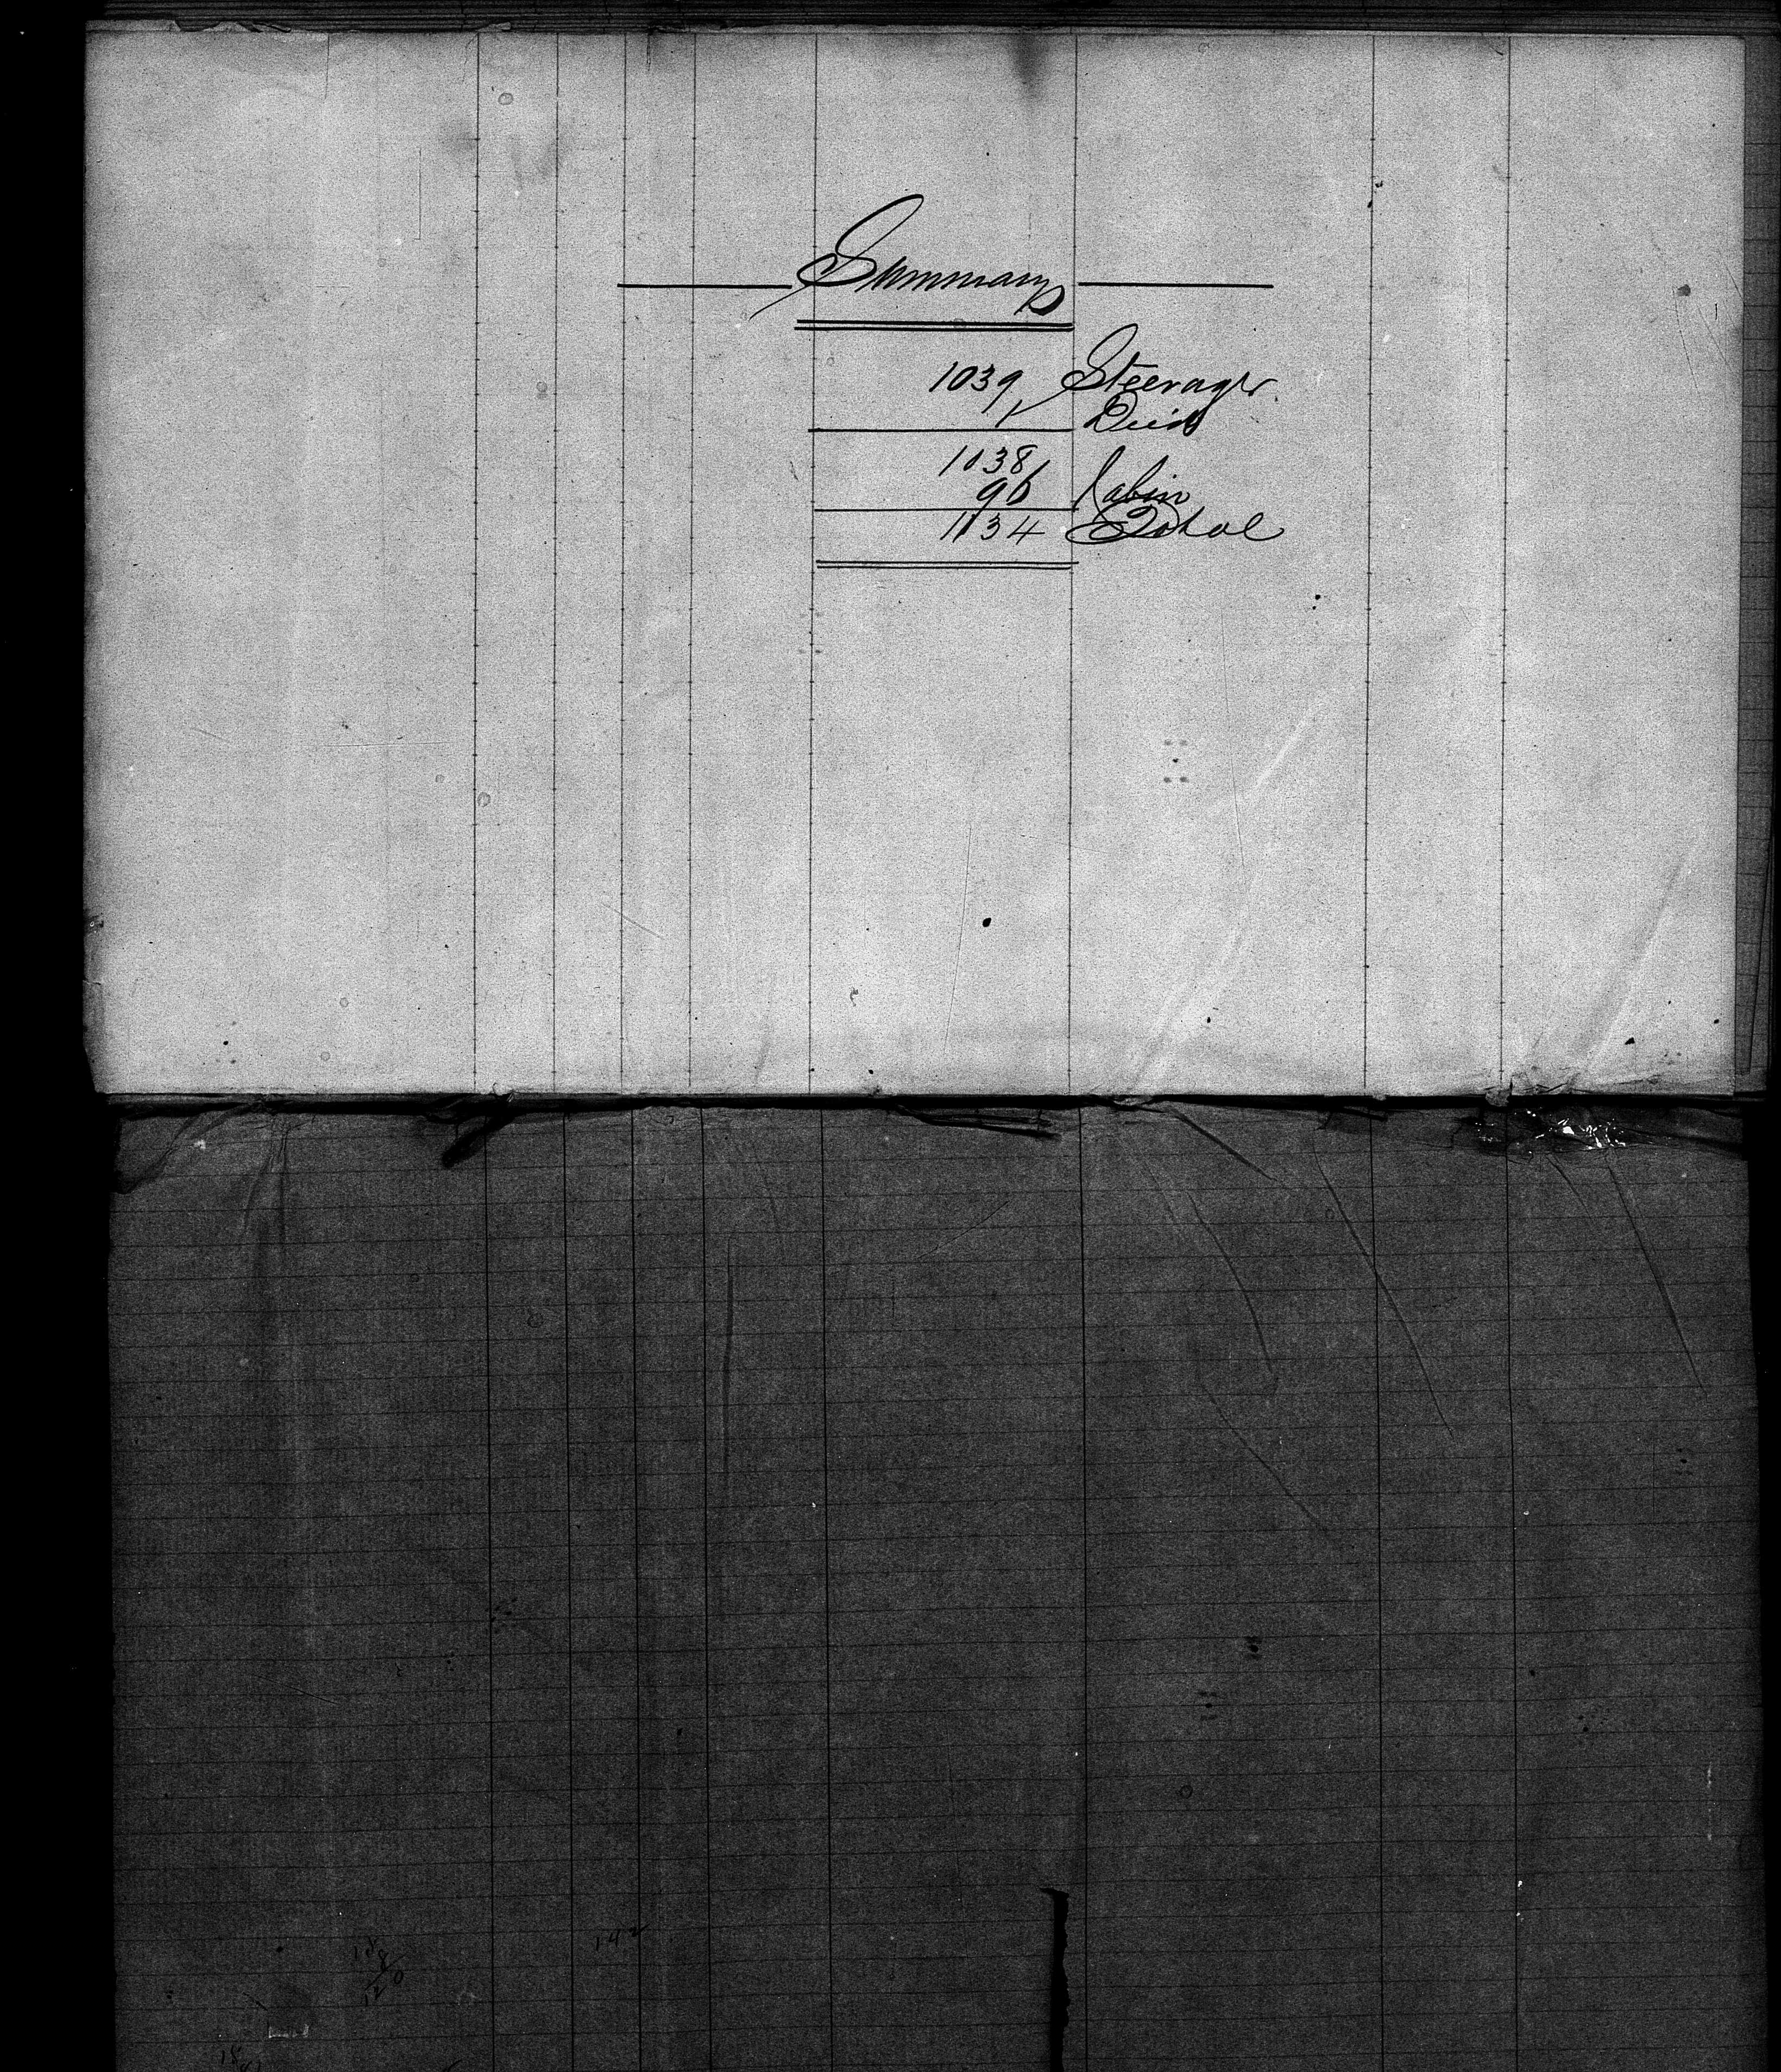 Summary
1039 Steerage
1 Died
1038
96 Cabin
1134 Total
142